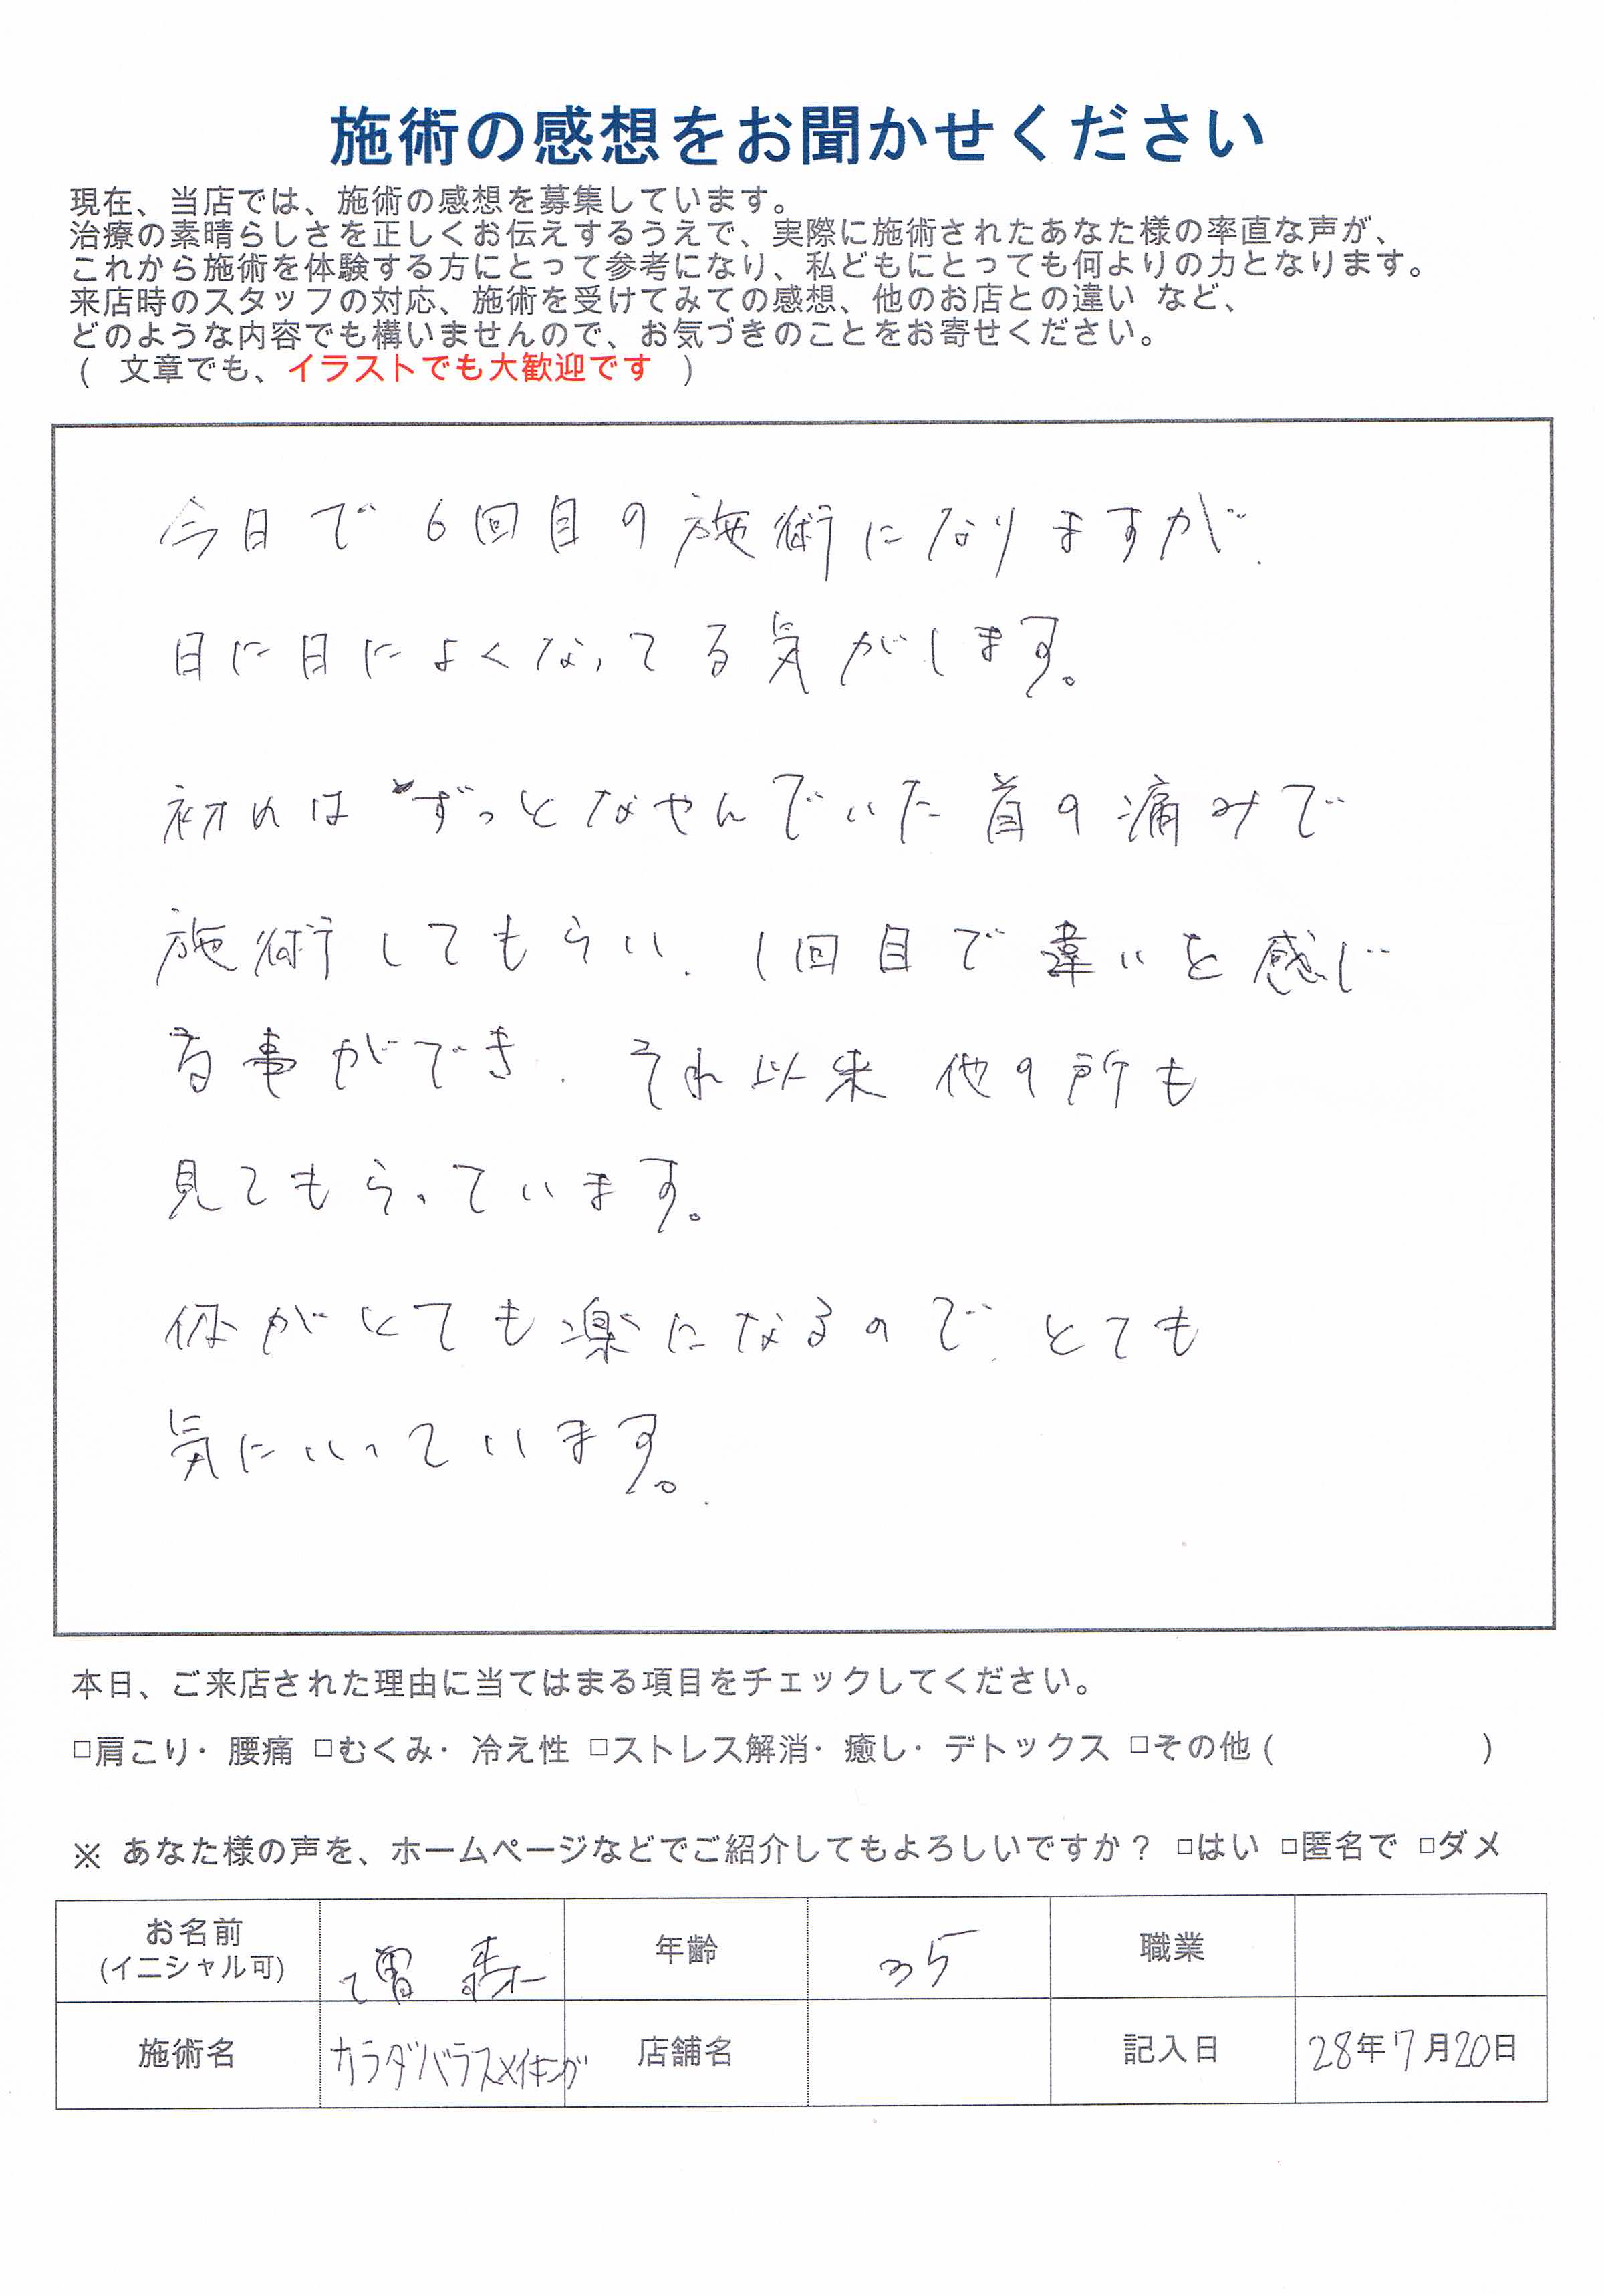 施術の感想をお聞かせください
現在、当店では、施術の感想を募集しています。
治療の素晴らしさを正しくお伝えするうえで、実際に施術されたあなた様の率直な声が、
これから施術を体験する方にとって参考になり、私どもにとっても何よりの力となります。
来店時のスタッフの対応、施術を受けてみての感想、他のお店との違い など、
どのような内容でも構いませんので、お気づきのことをお寄せください。
( 文章でも、イラストでも大歓迎です )
今日で6回目の施術になりますが、
日に日によくなってる気がします。
初めは ずっとなやんでいた首の痛みで
施術してもらい、1回目で違いを感じ
る事ができ、それ以来他の所も
見てもらっています。
体がとても楽になるので、とても
気にいっています。
本日、ご来店された理由に当てはまる項目をチェックしてください。
□肩こり・腰痛 □むくみ・冷え性 □ストレス解消・癒し・デトックス □その他 ( )
※ あなた様の声を、ホームページなどでご紹介してもよろしいですか？ □はい □匿名で □ダメ
お名前
(イニシャル可)
年齢 35 職業
施術名 カラダバラスメイキング 店舗名 記入日 28年7月20日